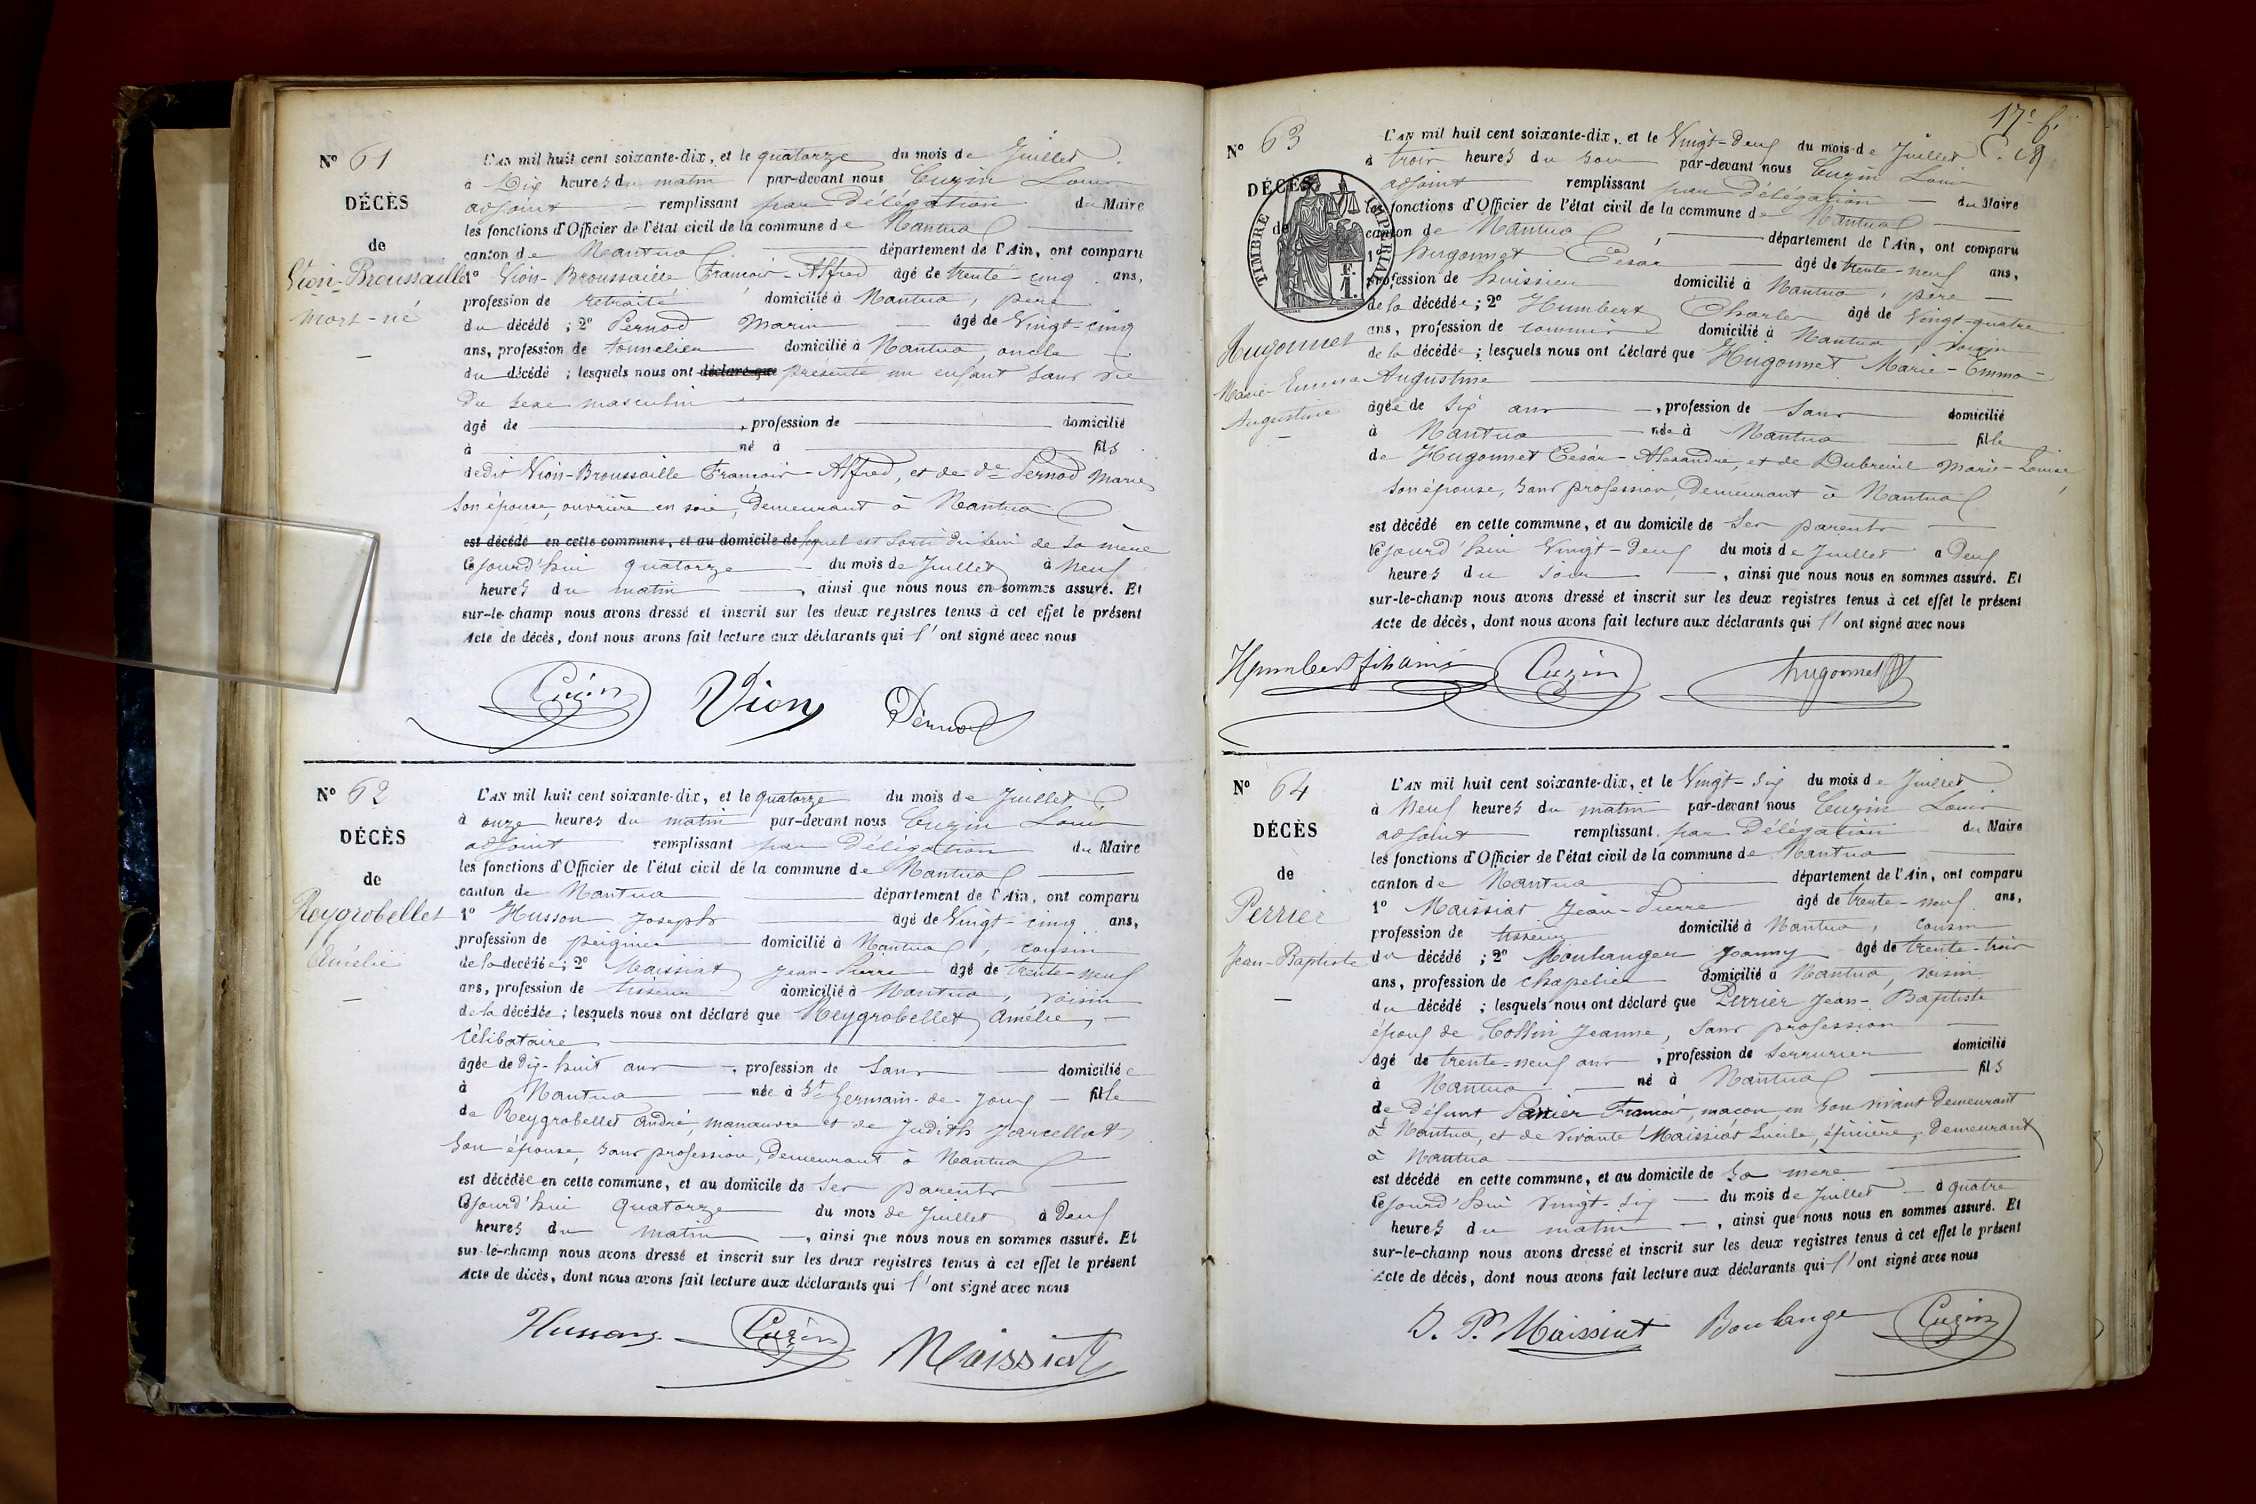 N° 61
DÉCÈS
de
Vion-Broussaille
mort-né
L'AN mil huit cent soixante-dix, et le quatorze du mois de Juillet
à Dix heures du matin par-devant nous Cuzin Louis
adjoint remplissant par Délégation du Maire
les fonctions d'Officier de l'état civil de la commune de Nantua
canton de Nantua département de l'Ain, ont comparu
1° Vion-Broussaille François-Alfred âgé de trente-cinq ans,
profession de retraité domicilié à Nantua, père
du décédé ; 2° Pernod Marin âgé de Vingt-cinq
ans, profession de tonnelier domicilié à Nantua, oncle
du décédé ; lesquels nous ont déclaré que présenté un enfant sans vie
du sexe masculin
âgé de , profession de domicilié
à né à fils
de dit Vion-Broussaille François-Alfred, et de de Pernod Marie
son épouse, ouvrière en soie, demeurant à Nantua
est décédé en cette commune, et au domicile de lequel est sorti du sein de sa mère
cejourd'hui quatorze du mois de Juillet à neuf
heures du matin , ainsi que nous nous en sommes assuré. Et
sur-le-champ nous avons dressé et inscrit sur les deux registres tenus à cet effet le présent
Acte de décès, dont nous avons fait lecture aux déclarants qui l'ont signé avec nous
Cuzin Vion Pernod
N° 62
DÉCÈS
de
Reygrobellet
Amélie
L'AN mil huit cent soixante-dix, et le quatorze du mois de Juillet
à onze heures du matin par-devant nous Cuzin Louis
adjoint remplissant par Délégation du Maire
les fonctions d'Officier de l'état civil de la commune de Nantua
canton de Nantua département de l'Ain, ont comparu
1° Husson Joseph âgé de Vingt-cinq ans,
profession de peigneur domicilié à Nantua, cousin
de la décédée ; 2° Maissiat Jean-Pierre âgé de trente-neuf
ans, profession de tisseur domicilié à Nantua, voisin
de la décédée ; lesquels nous ont déclaré que Reygrobellet Amélie,
célibataire
âgée de dix-huit ans , profession de sans domiciliée
à Nantua née à St Germain-de-Joux fille
de Reygrobellet André, manœuvre et de Judith Jarcellat
son épouse, sans profession, demeurant à Nantua
est décédée en cette commune, et au domicile de ses parents
cejourd'hui quatorze du mois de Juillet à Deux
heures du matin , ainsi que nous nous en sommes assuré. Et
sur-le-champ nous avons dressé et inscrit sur les deux registres tenus à cet effet le présent
Acte de décès, dont nous avons fait lecture aux déclarants qui l'ont signé avec nous
Husson Cuzin Maissiat
17e f.
N° 63
DÉCÈS
de
TIMBRE IMPÉRIAL
1 F.
Hugonnet
Marie-Emma
Augustine
L'AN mil huit cent soixante-dix, et le Vingt-deux du mois de Juillet
à trois heures du soir par-devant nous Cuzin Louis
adjoint remplissant par Délégation du Maire
les fonctions d'Officier de l'état civil de la commune de Nantua
canton de Nantua département de l'Ain, ont comparu
1° Hugonnet César âgé de trente-neuf ans,
profession de huissier domicilié à Nantua, père
de la décédée ; 2° Humbert Charles âgé de Vingt-quatre
ans, profession de commis domicilié à Nantua, voisin
de la décédée ; lesquels nous ont déclaré que Hugonnet Marie-Emma-
Augustine
âgée de six ans , profession de sans domicilié
à Nantua née à Nantua fille
de Hugonnet César-Alexandre, et de Dubreuil Marie-Louise,
son épouse, sans profession, demeurant à Nantua
est décédé en cette commune, et au domicile de ses parents
cejourd'hui Vingt-deux du mois de Juillet à Deux
heures du soir , ainsi que nous nous en sommes assuré. Et
sur-le-champ nous avons dressé et inscrit sur les deux registres tenus à cet effet le présent
Acte de décès, dont nous avons fait lecture aux déclarants qui l'ont signé avec nous
Humbert fils aîné Cuzin Hugonnet
N° 64
DÉCÈS
de
Perrier
Jean-Baptiste
L'AN mil huit cent soixante-dix, et le Vingt-six du mois de Juillet
à Neuf heures du matin par-devant nous Cuzin Louis
adjoint remplissant par Délégation du Maire
les fonctions d'Officier de l'état civil de la commune de Nantua
canton de Nantua département de l'Ain, ont comparu
1° Maissiat Jean-Pierre âgé de trente-neuf ans,
profession de tisseur domicilié à Nantua, cousin
du décédé ; 2° Boulanger Joanny âgé de trente-trois
ans, profession de chapelier domicilié à Nantua, voisin
du décédé ; lesquels nous ont déclaré que Perrier Jean-Baptiste
époux de Jeanne, sans profession
âgé de trente-neuf ans , profession de serrurier domicilié
à Nantua né à Nantua fils
de défunt Perrier François, maçon en son vivant demeurant
à Nantua, et de vivante Maissiat Lucile, épicière, demeurant
à Nantua
est décédé en cette commune, et au domicile de sa mère
cejourd'hui vingt-six du mois de Juillet à quatre
heures du matin , ainsi que nous nous en sommes assuré. Et
sur-le-champ nous avons dressé et inscrit sur les deux registres tenus à cet effet le présent
Acte de décès, dont nous avons fait lecture aux déclarants qui l'ont signé avec nous
J. P. Maissiat Boulange Cuzin